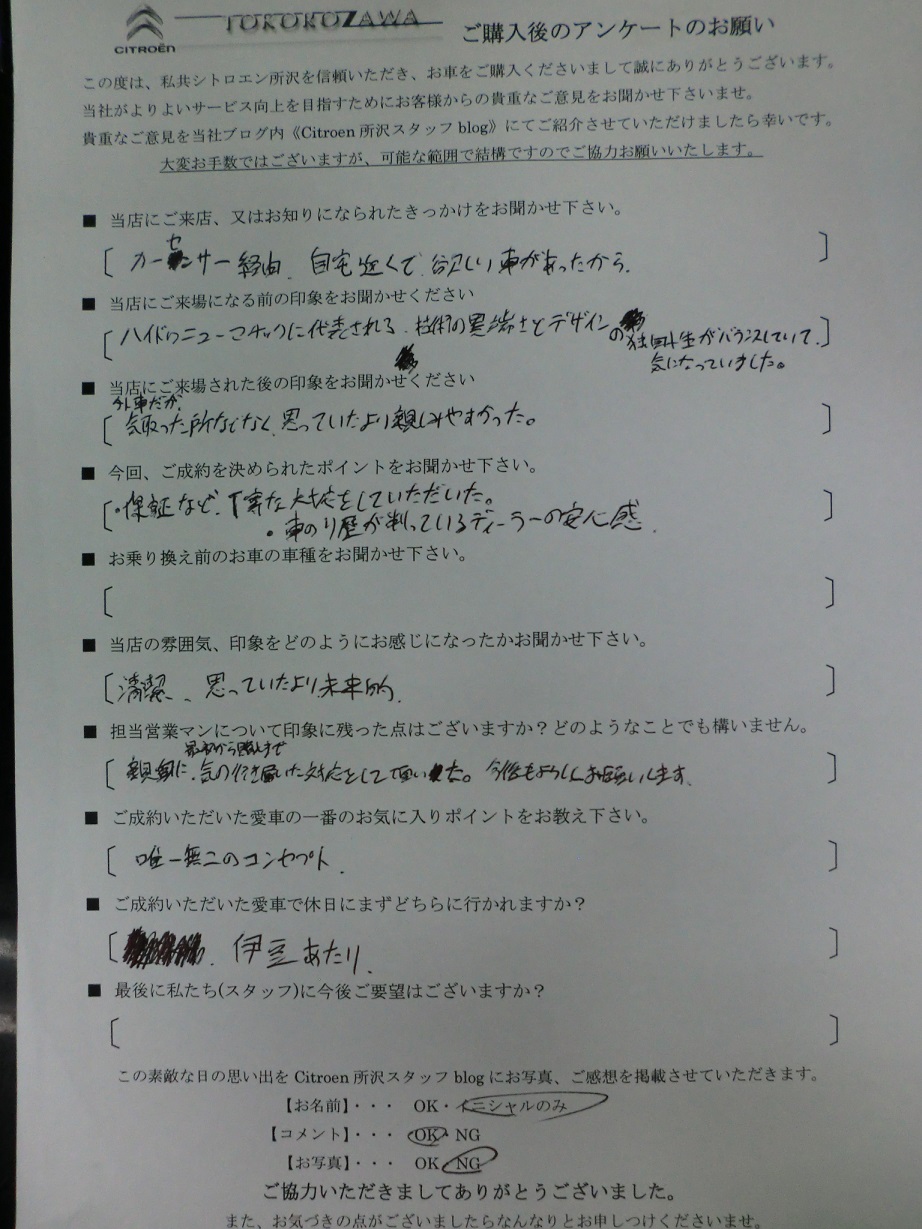 CITROËN
TOKOROZAWA
ご購入後のアンケートのお願い
この度は、私共シトロエン所沢を信頼いただき、お車をご購入くださいまして誠にありがとうございます。
当社がよりよいサービス向上を目指すためにお客様からの貴重なご意見をお聞かせ下さいませ。
貴重なご意見を当社ブログ内《Citroen 所沢スタッフ blog》にてご紹介させていただけましたら幸いです。
大変お手数ではございますが、可能な範囲で結構ですのでご協力お願いいたします。
■ 当店にご来店、又はお知りになられたきっかけをお聞かせ下さい。
カーセンサー経由、自宅近くで、欲しい車があったから。
■ 当店にご来場になる前の印象をお聞かせください
ハイドロニューマチックに代表される、技術の異端さとデザインの独自性がバランスしていて、
気になっていました。
■ 当店にご来場された後の印象をお聞かせください
外車だが、
気取った所などなく、思っていたより親しみやすかった。
■ 今回、ご成約を決められたポイントをお聞かせ下さい。
・保証など、丁寧な対応をしていただいた。
・車のり歴が判っているディーラーの安心感。
■ お乗り換え前のお車の車種をお聞かせ下さい。
■ 当店の雰囲気、印象をどのようにお感じになったかお聞かせ下さい。
清潔、思っていたより未来的、
■ 担当営業マンについて印象に残った点はございますか？どのようなことでも構いません。
親身に、気の行き届いた対応をして頂いた。今後もよろしくお願いします、
■ ご成約いただいた愛車の一番のお気に入りポイントをお教え下さい。
唯一無二のコンセプト、
■ ご成約いただいた愛車で休日にまずどちらに行かれますか？
伊豆あたり、
■ 最後に私たち(スタッフ)に今後ご要望はございますか？
この素敵な日の思い出を Citroen 所沢スタッフ blog にお写真、ご感想を掲載させていただきます。
【お名前】・・・ OK・イニシャルのみ
【コメント】・・・ OK・NG
【お写真】・・・ OK・NG
ご協力いただきましてありがとうございました。
また、お気づきの点がございましたらなんなりとお申しつけくださいませ。